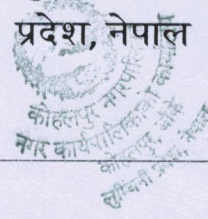 प्रदेश, नेपाल
कोहलपुर नगरपालिका
नगर कार्यपालिकाको कार्यालय
कोहलपुर, बाँके
लुम्बिनी प्रदेश, नेपाल